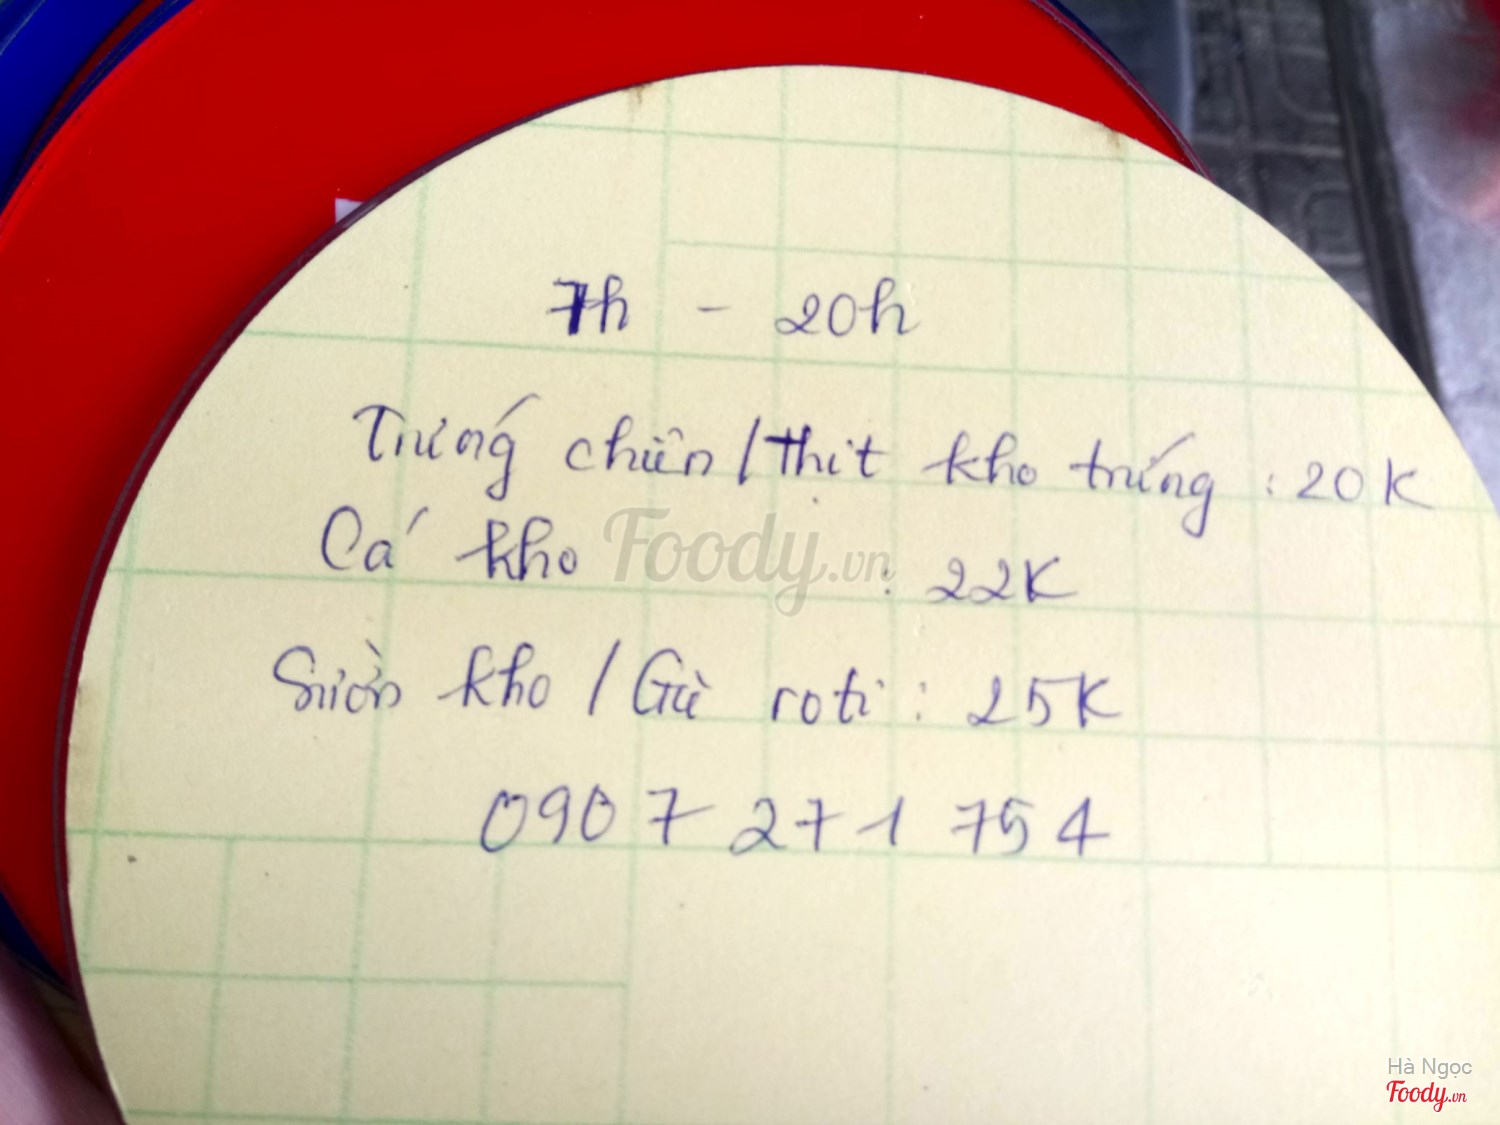 7h - 20h
Trứng chiên / Thịt kho trứng : 20K
Cá kho : 22K
Foody.vn
Sườn kho / Gà roti : 25K
0907 271 754
Hà Ngọc
Foody.vn